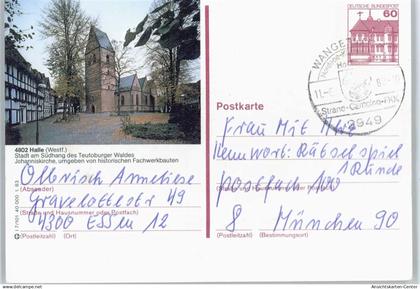 DEUTSCHE BUNDESPOST
60
WANGE
2949
Strand-Camping-FKK
4802 Halle (Westf.)
Stadt am Südhang des Teutoburger Waldes
Johanniskirche, umgeben von historischen Fachwerkbauten
Olbrisch Anneliese
(Absender)
Gravelottestr 49
(Straße und Hausnummer oder Postfach)
4300 Essen 12
(Postleitzahl) (Ort)
Postkarte
Frau Mit
Kennwort: Rätselspiel
1 Runde
(Straße und Hausnummer oder Postfach)
postfach 100
8 München 90
(Postleitzahl) (Bestimmungsort)
Ansichtskarten-Center